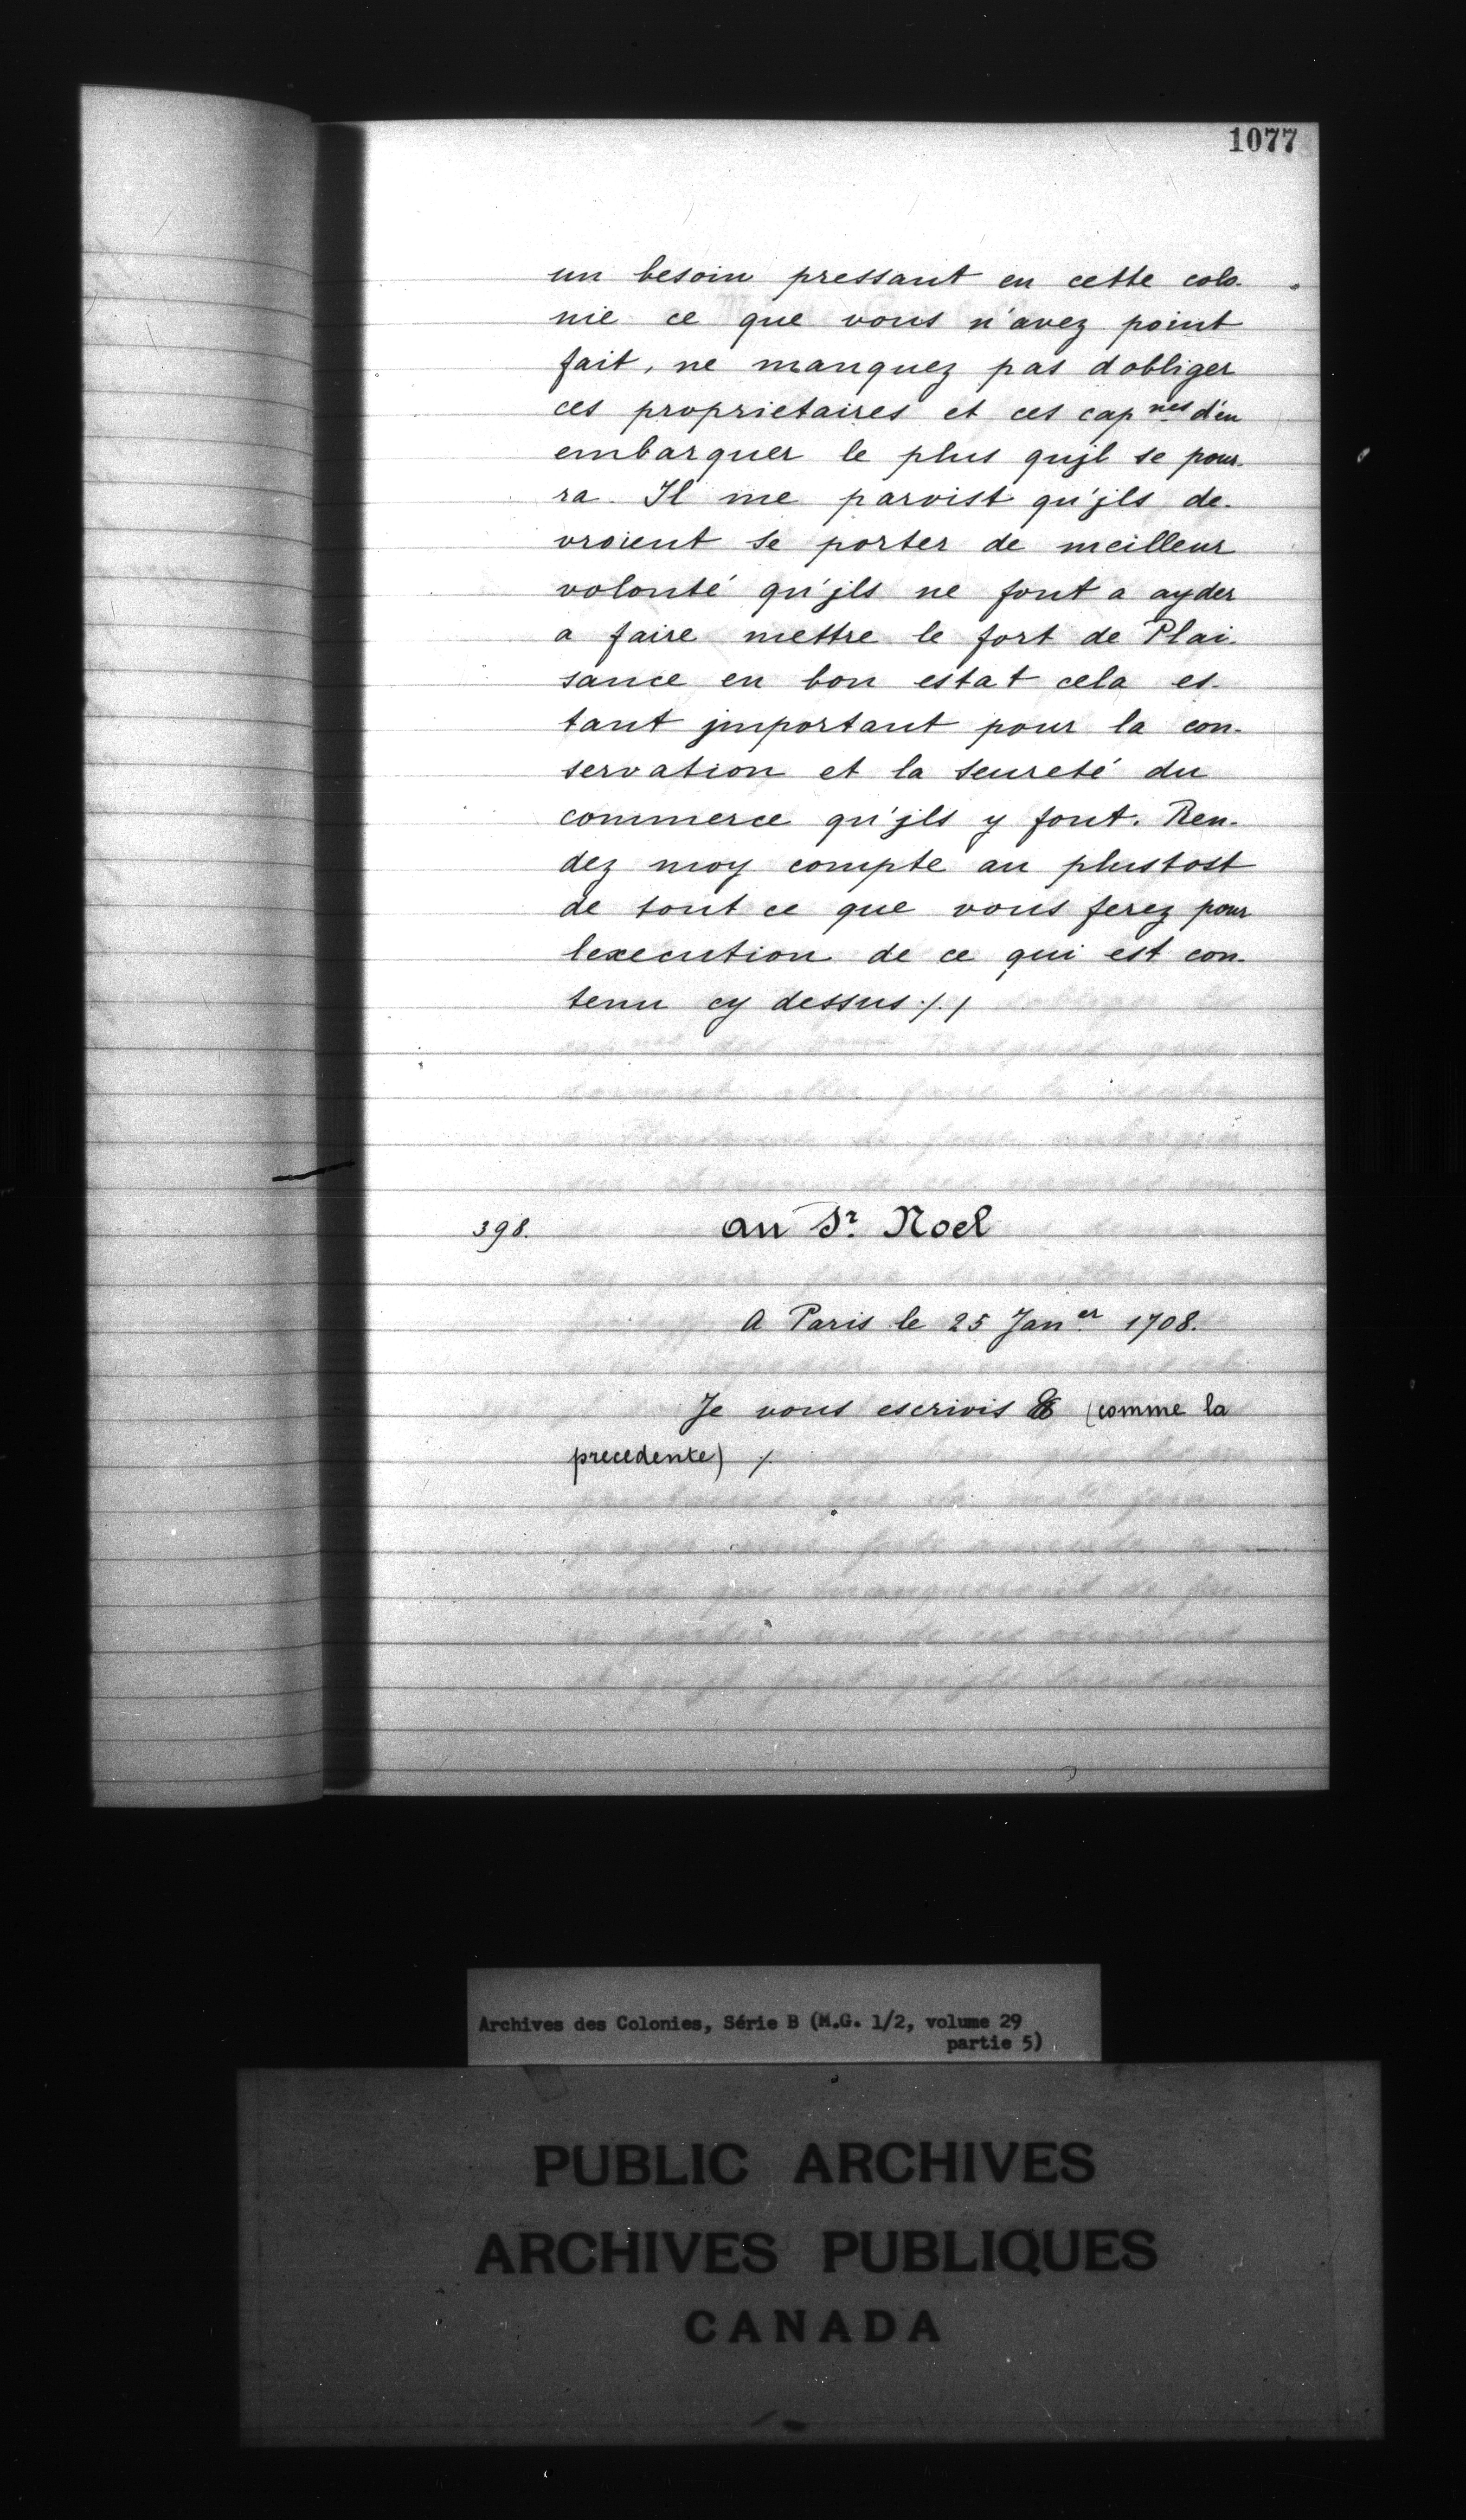 1077
un besoin pressant en cette colo-
nie ce que vous n'avez point
fait, ne manquez pas dobliger
ces proprietaires et ces cap nes d'en
embarquer le plus qujl se pour-
ra. Il me paroist qu'jls de-
vroient se porter de meilleur
volonté qu'jls ne font a ayder
a faire mettre le fort de Plai-
sance en bon estat cela es-
tant jmportant pour la con-
servation et la seureté du
commerce qu'jls y font. Ren-
dez moy compte au plustost
de tout ce que vous ferez pour
lexecution de ce qui est con-
tenu cy dessus ./. /
398. au Sr. Noel
A Paris le 25 Jan er 1708.
Je vous escrivis & (comme la
precedente) /.
Archives des Colonies, Série B (M.G. 1/2, volume 29
partie 5)
PUBLIC ARCHIVES
ARCHIVES PUBLIQUES
CANADA